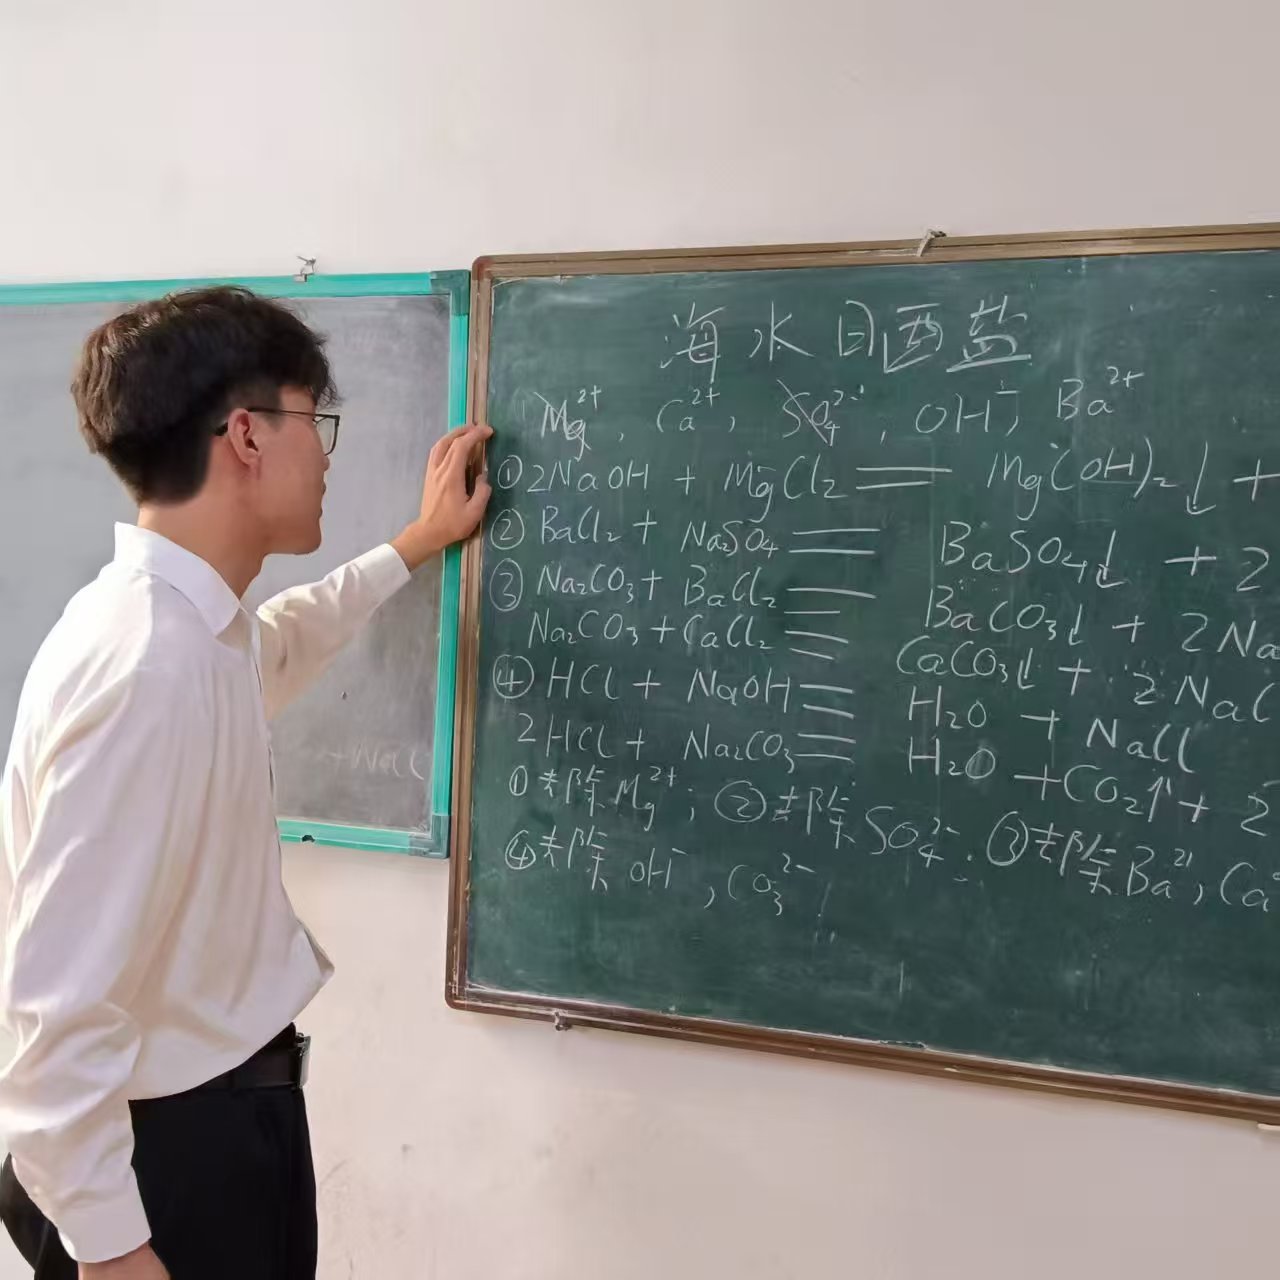 海水日晒盐
Mg²⁺, Ca²⁺, SO₄²⁻, OH⁻, Ba²⁺
①2NaOH + MgCl₂ == Mg(OH)₂↓ +
②BaCl₂ + Na₂SO₄ == BaSO₄↓ + 2
③Na₂CO₃ + BaCl₂ == BaCO₃↓ + 2Na
Na₂CO₃ + CaCl₂ == CaCO₃↓ + 2NaC
④HCl + NaOH == H₂O + NaCl
2HCl + Na₂CO₃ == H₂O + CO₂↑ + 2
①去除Mg²⁺; ②去除SO₄²⁻. ③去除Ba²⁺, Ca
④去除OH⁻, CO₃²⁻
+NaCl